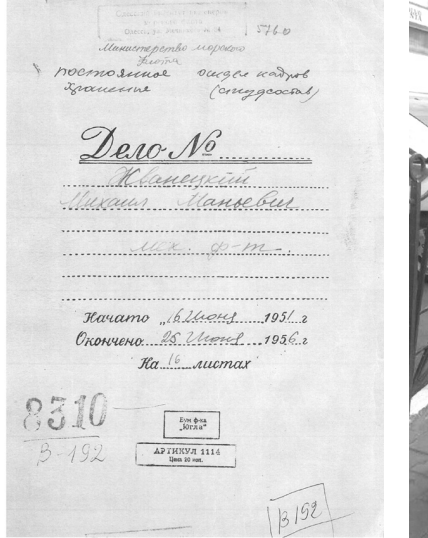 5760
Министерство морского
флота
постоянное отдел кадров
хранение (студсостав)
Дело №
Жванецкий
Михаил Маньевич
мех. ф-т.
Начато „16 Июня 1951 г
Окончено 25 Июня 1956 г
На 16 листах
8310
В-192
Бум ф-ка
„Югла"
АРТИКУЛ 1114
Цена 20 коп.
В 192